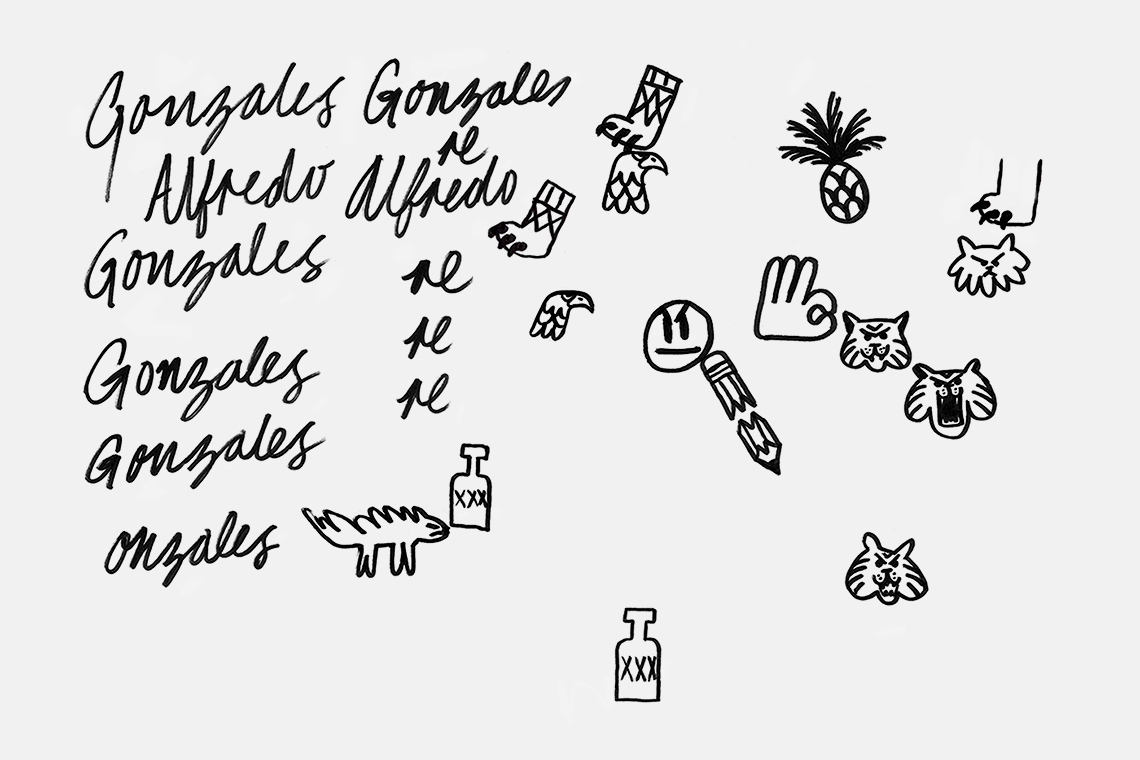 Gonzales Gonzales
re
Alfredo Alfredo
Gonzales
re
re
Gonzales
re
Gonzales
XXX
onzales
XXX